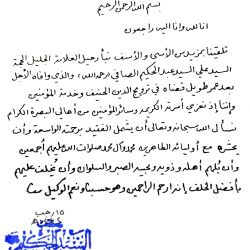 بسم الله الرحمن الرحيم
انا لله وانا اليه راجعون
تلقينا بمزيد من الأسى والأسف نبأ رحيل العلامة الجليل الحجة
السيد علي السيد عبد الحكيم الصافي رحمه الله، والذي وافاه الأجل
بعد عمر طويل قضاه في ترويج الدين الحنيف وخدمة المؤمنين
وإننا إذ نعزي أسرته الكريمة وسائر المؤمنين من أهالي البصرة الكرام
نسأل الله سبحانه وتعالى أن يشمل الفقيد برحمته الواسعة وأن
يحشره مع أوليائه الطاهرين محمد وآل محمد صلوات الله عليهم أجمعين
وأن يلهم أهله وذويه ومحبيه الصبر والسلوان وأن يخلف عليهم
بأفضل الخلف إنه أرحم الراحمين وهو حسبنا ونعم الوكيل
١٥ رجب